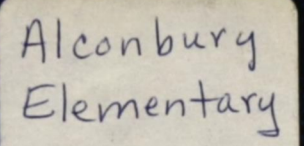 Alconbury
Elementary